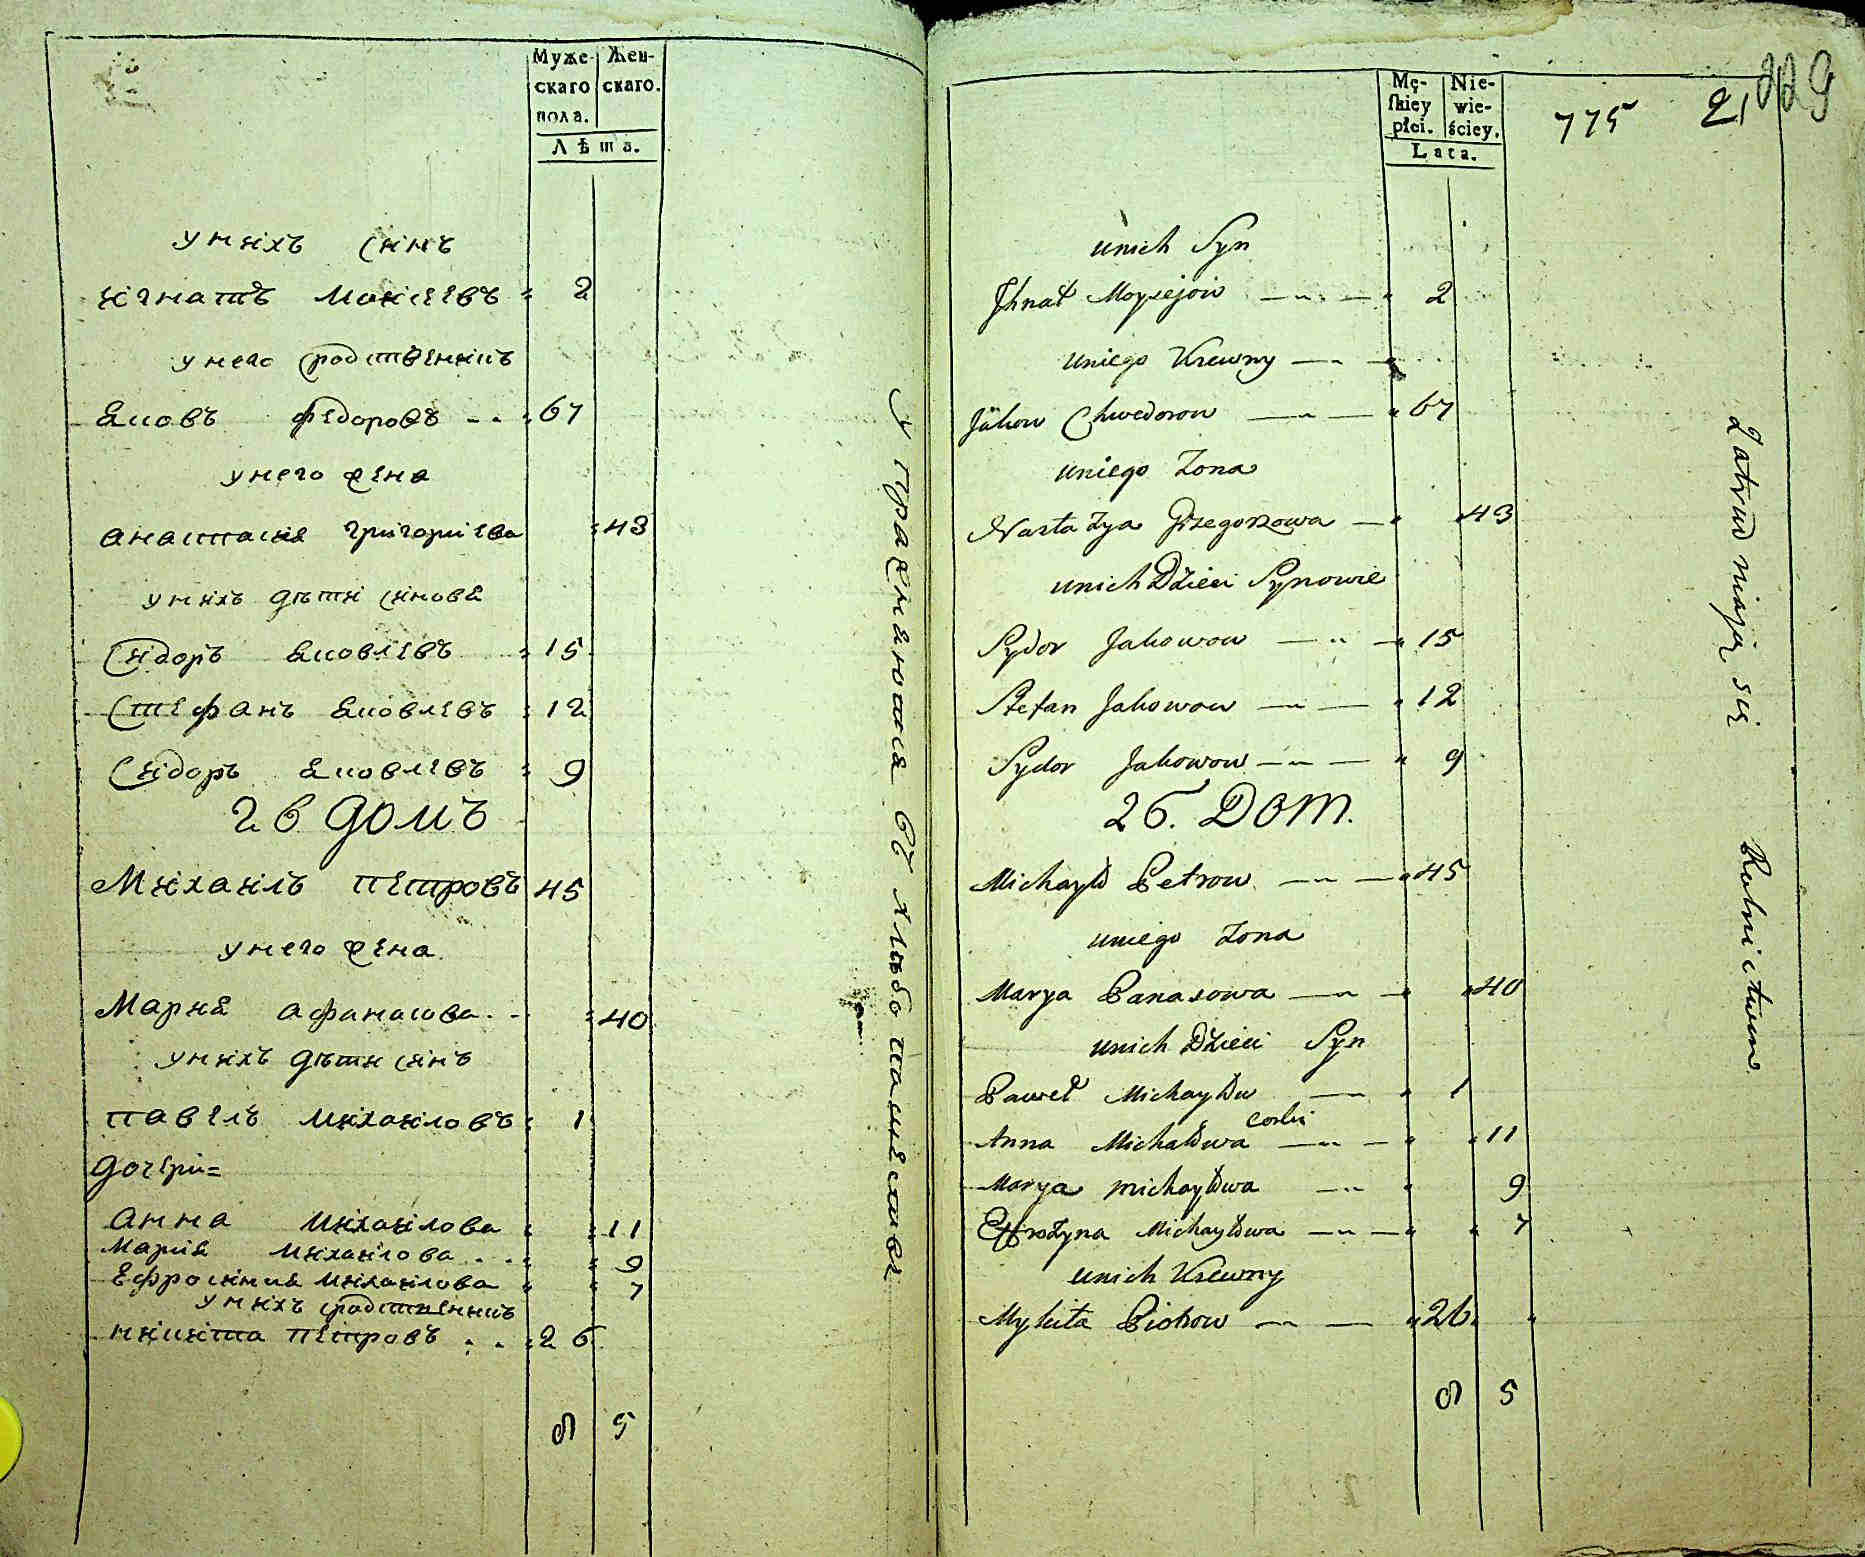 Муже- Жен-
скаго скаго.
пола.
Лѣта.
у нихъ синъ
Игнатъ Моисеевъ 2
у него сродственникъ
Яковъ Федоровъ 67
у него жена
Анастасия Григориева 43
у нихъ дѣти синовя
Сидоръ Яковлевъ 15
Стефанъ Яковлевъ 12
Сидоръ Яковлевъ 9
26 домъ
Михаилъ Петровъ 45
у него жена
Мария Афанасова 40
у нихъ дѣти синъ
Павелъ Михаиловъ 1
дочери=
Анна Михаилова 11
Мария Михаилова 9
Ефросиния Михаилова 7
у нихъ сродственникъ
Никита Петровъ 26
8 5
Упражняются въ хлѣбопашествѣ
Mę- Nie-
skiey wie-
płci. ściey.
Lata.
775 21 229
unich Syn
Jhnat Moysejow 2
uniego Krewny
Jakow Chwedorow 67
uniego Zona
Nastazya Grzegorzowa 43
unich Dzieci Synowie
Sydor Jakowow 15
Stefan Jakowow 12
Sydor Jakowow 9
26. Dom.
Michayło Petrow 45
uniego Zona
Marya Panasowa 40
unich Dzieci Syn
Paweł Michayłow 1
corki
Anna Michałowa 11
Marya Michayłowa 9
Effrozyna Michayłowa 7
unich Krewny
Mykita Piotrow 26
8 5
Zatrudniają się Rolnictwem